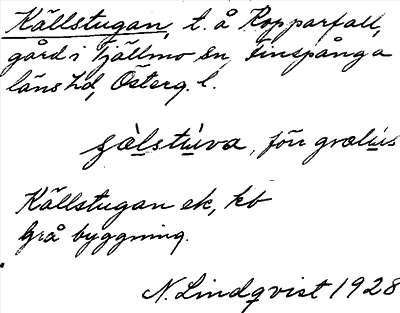 Källstugan, t. å Kopparfall,
gård i Tjällmo sn, Finspånga
läns hd, Österg. l.
gælstuva, förr grælus
Källstugan ek, kb
Grå byggning.
N. Lindqvist 1928